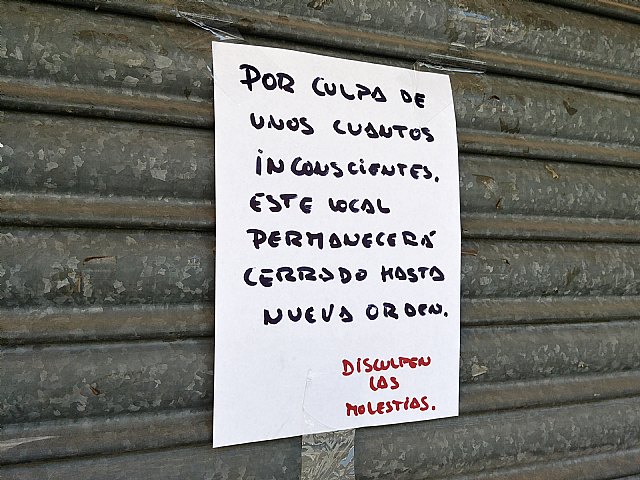 POR CULPA DE
UNOS CUANTOS
INCONSCIENTES.
ESTE LOCAL
PERMANECERÁ
CERRADO HASTA
NUEVA ORDEN.
DISCULPEN
LAS
MOLESTIAS.